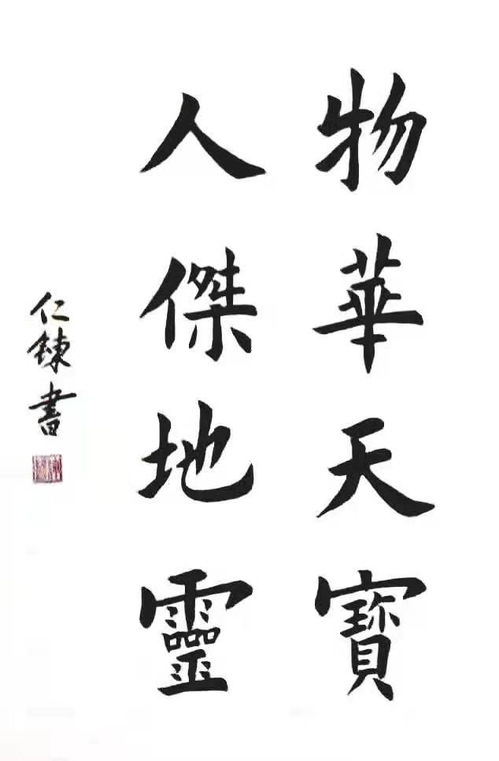 物華天寶
人傑地靈
仁鍊書